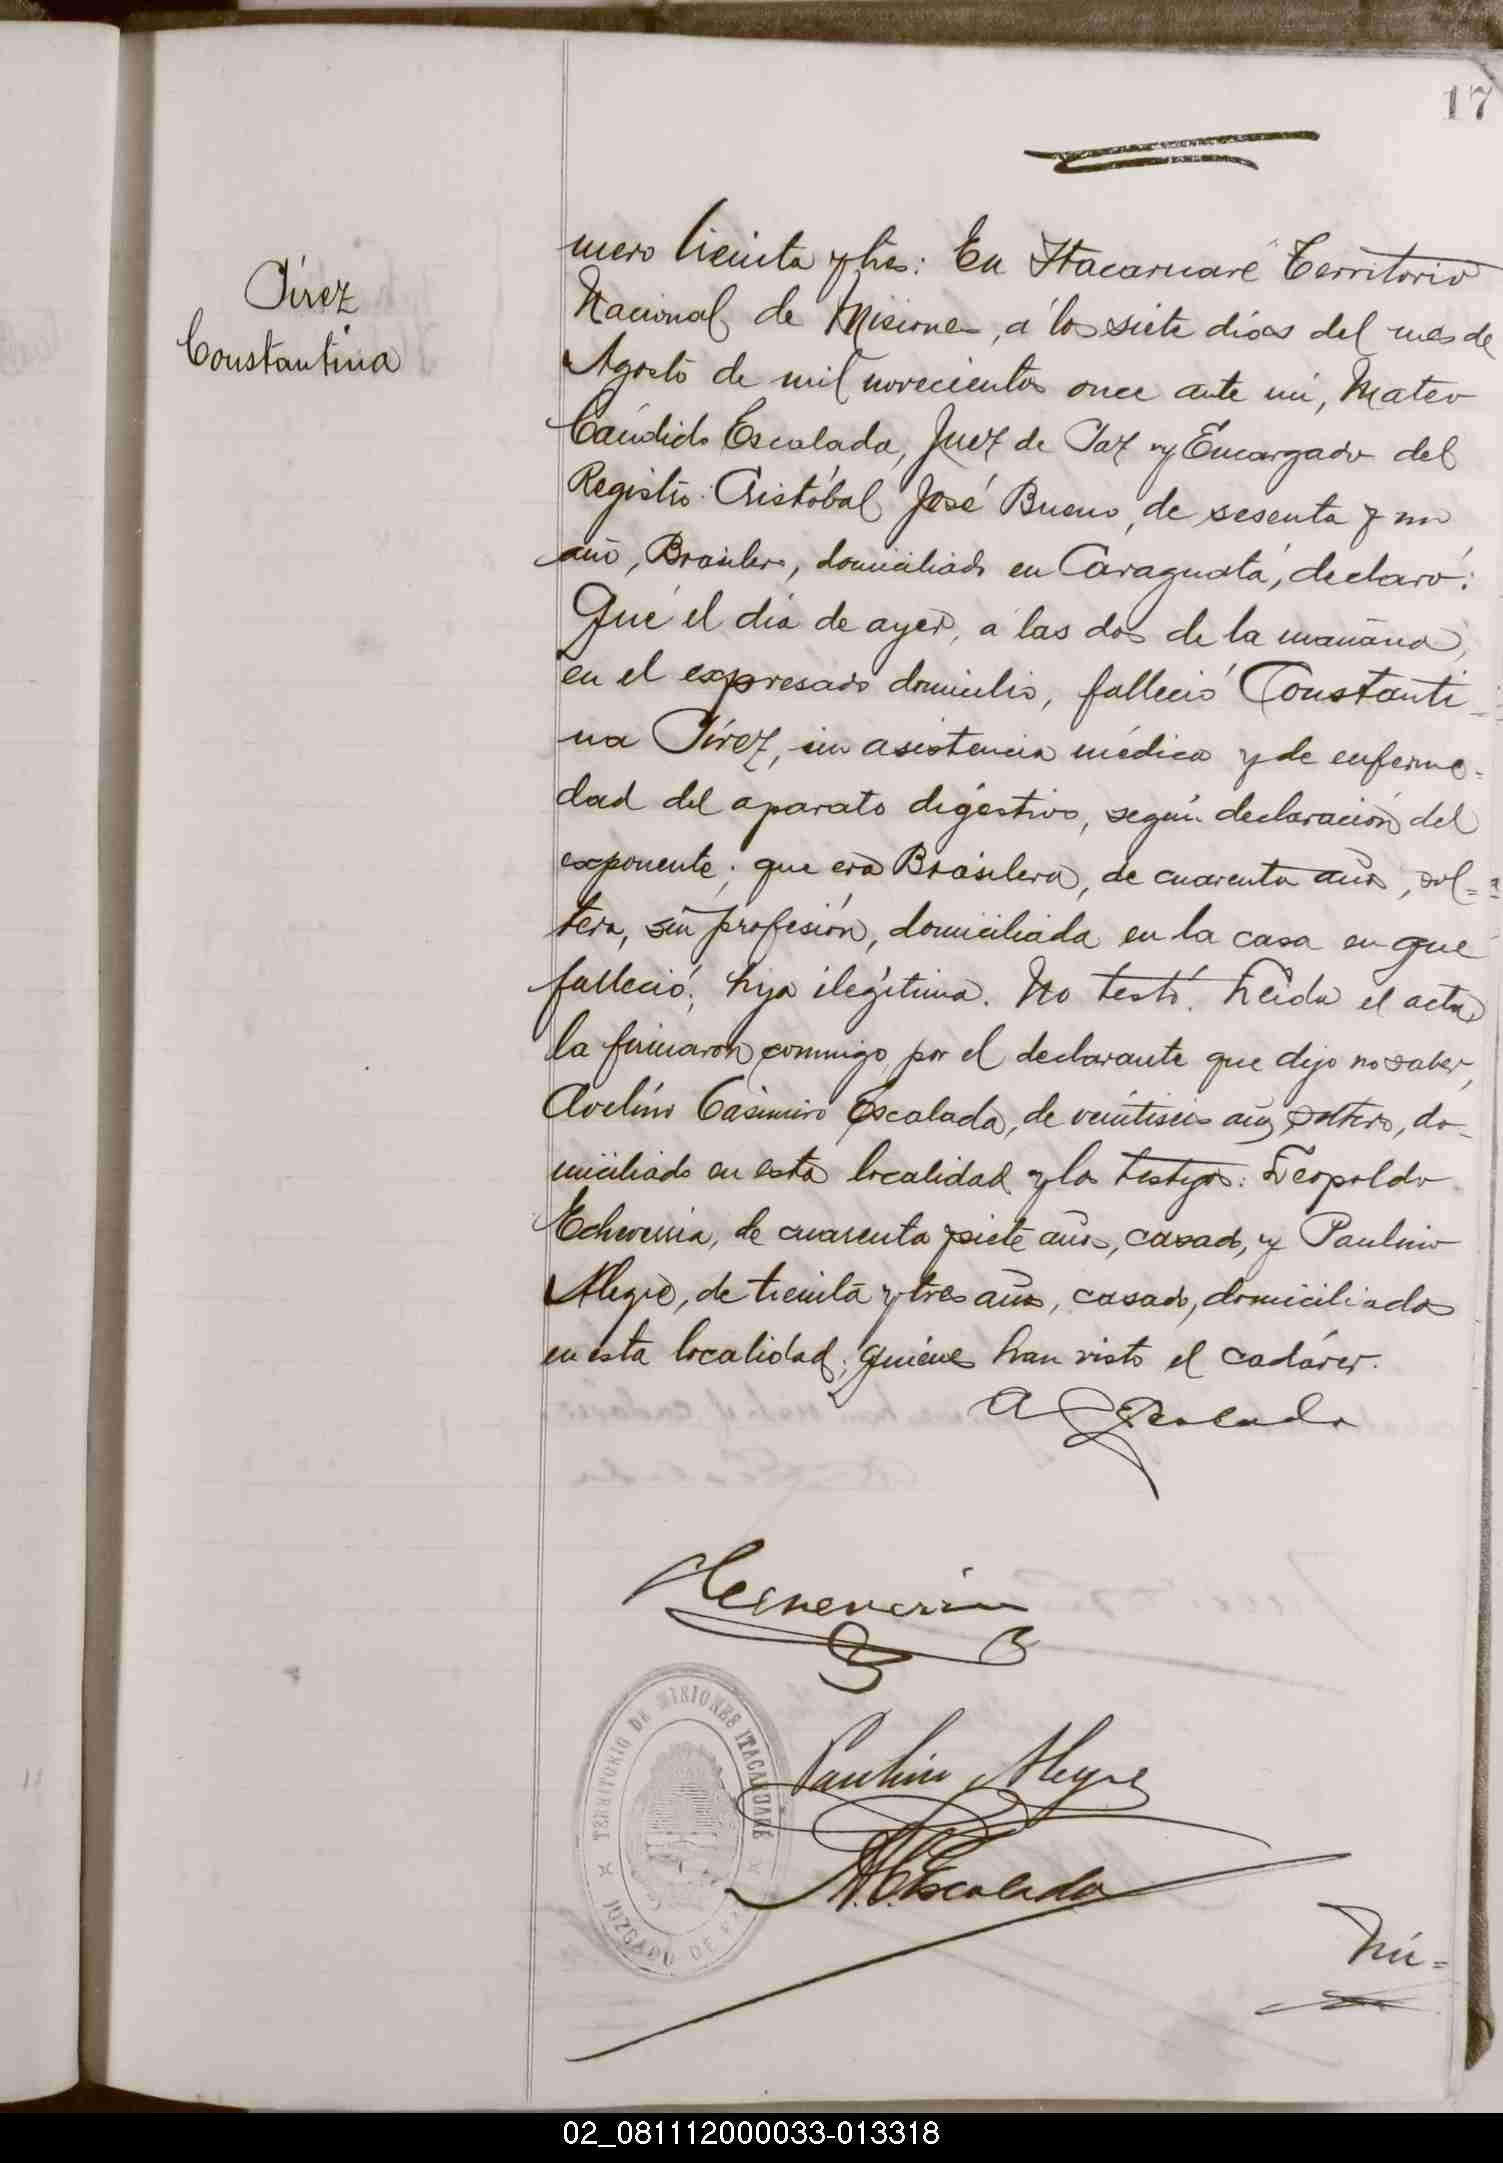 17
Pírez
Constantina
mero treinta y tres: En Itacaruaré Territorio
Nacional de Misiones, á los siete días del mes de
Agosto de mil novecientos once ante mí, Mateo
Cándido Escalada, Juez de Paz y Encargado del
Registro: Cristóbal José Bueno, de sesenta y un
año, Brasilero, domiciliado en Caraguatá, declaró:
Que el día de ayer, á las dos de la mañana,
en el expresado domicilio, falleció Constanti-
na Pírez, sin asistencia médica y de enferme-
dad del aparato digestivo, según declaración del
exponente; que era Brasilera, de cuarenta años, sol=
tera, sin profesión, domiciliada en la casa en que
falleció; hija ilegítima. No testó. Leída el acta,
la firmaron conmigo, por el declarante que dijo no saber,
Avelino Casimiro Escalada, de veintiseis años, soltero, do-
miciliado en esta localidad y los testigos: Leopoldo
Echeverría, de cuarenta y siete años, casado, y Paulino
Alegre, de treinta y tres años, casado, domiciliados
en esta localidad; quienes han visto el cadáver.
A Escalada
LEcheverría
Paulino Alegre
M.C. Escalada
TERRITORIO DE MISIONES ITACARUARÉ
JUZGADO DE PAZ
Nú=
02_081112000033-013318